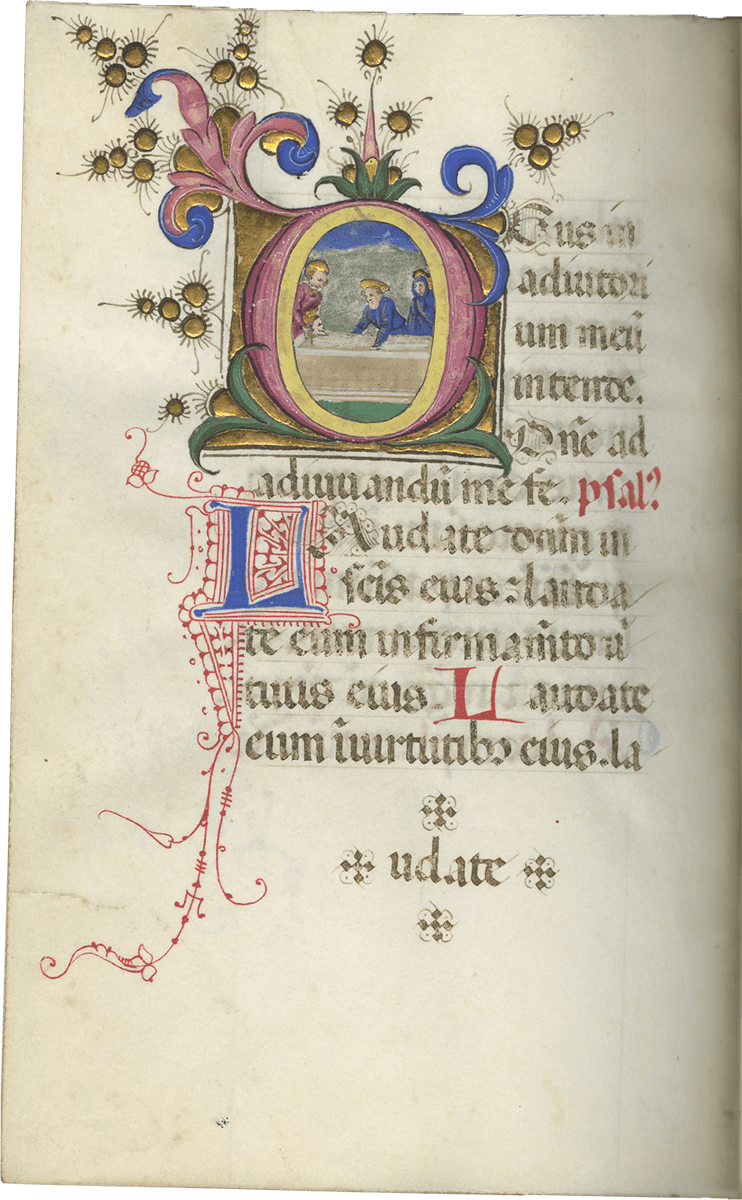 Deus in
adiutori
um meū
intende.
Dn̄e ad
adiuuandū me fe. psal?
Laudate dom̄ in
sc̄is eius : lauda
te eum in firmam̄to ū
tutis eius. Laudate
eum ī uirtutibꝫ eius. la
udate